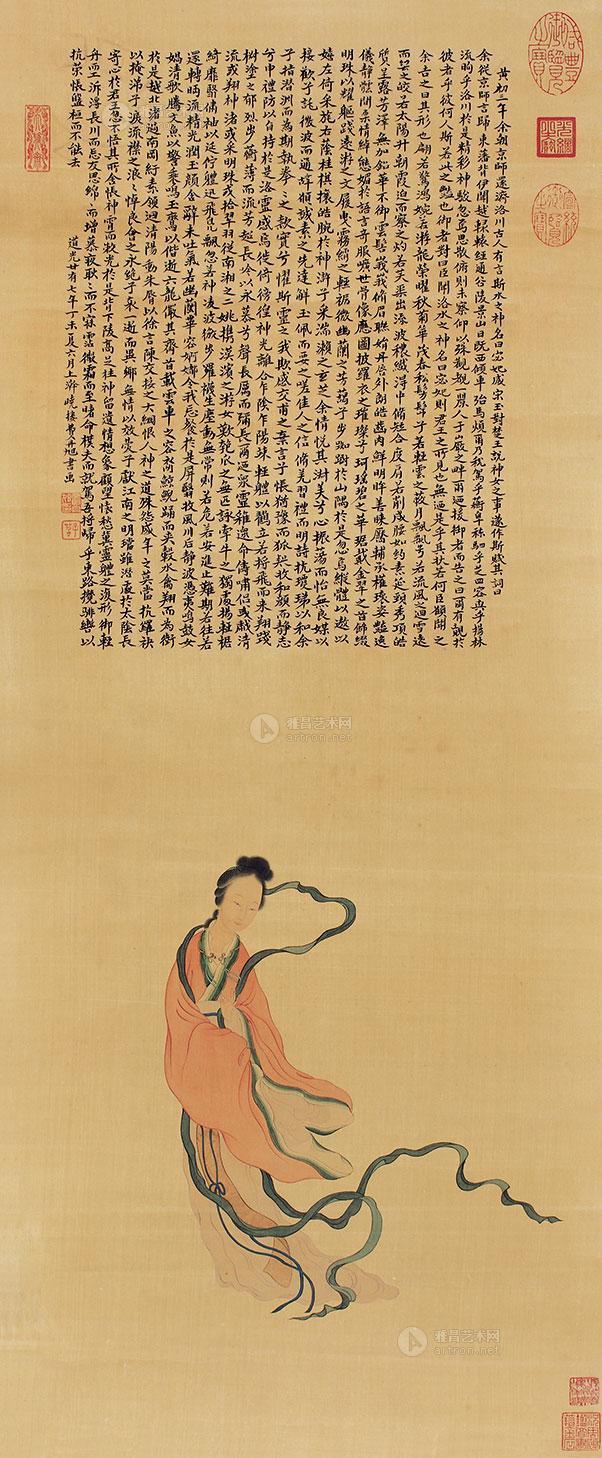 黃初三年余朝京師還濟洛川古人有言斯水之神名曰宓妃感宋玉對楚王說神女之事遂作斯賦其詞曰
余從京師言歸東藩背伊闕越轘轅經通谷陵景山日既西傾車殆馬煩爾乃稅駕乎蘅皋秣駟乎芝田容與乎楊林
流眄乎洛川於是精移神駭忽焉思散俯則未察仰以殊觀覩一麗人于巖之畔爾迺援御者而告之曰爾有覿於
彼者乎彼何人斯若此之豔也御者對曰臣聞洛水之神名曰宓妃則君王之所見也無迺是乎其狀若何臣願聞之
余告之曰其形也翩若驚鴻婉若游龍榮曜秋菊華茂春松髣髴兮若輕雲之蔽月飄飄兮若流風之迴雪遠
而望之皎若太陽升朝霞迫而察之灼若芙蕖出淥波穠纖得中脩短合度肩若削成腰如約素延頸秀項皓
質呈露芳澤無加鉛華不御雲髻峩峩脩眉聯娟丹脣外朗皓齒內鮮明眸善睞靨輔承權瓌姿豔逸
儀靜體閑柔情綽態媚於語言奇服曠世骨像應圖披羅衣之璀璨兮珥瑤碧之華琚戴金翠之首飾綴
明珠以耀軀踐遠遊之文履曳霧綃之輕裾微幽蘭之芳藹兮步踟躕於山隅於是忽焉縱體以遨以
嬉左倚采旄右蔭桂旗攘皓腕於神滸兮采湍瀨之玄芝余情悅其淑美兮心振蕩而怡無良媒以
接歡兮託微波而通辭願誠素之先達解玉佩而要之嗟佳人之信脩羌習禮而明詩抗瓊珶以和余
兮指潛淵而為期執拳拳之款實兮懼斯靈之我欺感交甫之棄言兮悵猶豫而狐疑收和顏而靜志
兮申禮防以自持於是洛靈感焉徙倚彷徨神光離合乍陰乍陽竦輕軀以鶴立若將飛而未翔踐
椒塗之郁烈步蘅薄而流芳超長吟以永慕兮聲哀厲而彌長爾迺眾靈雜遝命儔嘯侶或戲清
流或翔神渚或采明珠或拾翠羽從南湘之二妃攜漢濱之游女歎匏瓜之無匹詠牽牛之獨處揚輕袿
綺靡翳脩袖以延佇體迅飛鳧飄忽若神凌波微步羅襪生塵動無常則若危若安進止難期若往若
還轉眄流精光潤玉顏含辭未吐氣若幽蘭華容婀娜令我忘餐於是屏翳收風川后靜波馮夷鳴鼓女
媧清歌騰文魚以警乘鳴玉鸞以偕逝六龍儼其齊首載雲車之容裔鯨鯢踊而夾轂水禽翔而為衛
於是越北沚過南岡紆素領迴清陽動朱脣以徐言陳交接之大綱恨人神之道殊怨盛年之莫當抗羅袂
以掩涕兮淚流襟之浪浪悼良會之永絕兮哀一逝而異鄉無情以效愛兮獻江南之明璫雖潛處於太陰長
寄心於君王忽不悟其所舍悵神宵而蔽光於是背下陵高足往神留遺情想象顧望懷愁冀靈體之復形御輕
舟而上泝浮長川而忘反思綿綿而增慕夜耿耿而不寐霑微霜而至曙命僕夫而就駕吾將歸乎東路攬騑轡以
抗策悵盤桓而不能去
道光廿有七年丁未夏六月上澣曉樓費丹旭書畫
咸豐御覽之寶
雅昌艺术网
artron.net
雅昌艺术网
artron.net